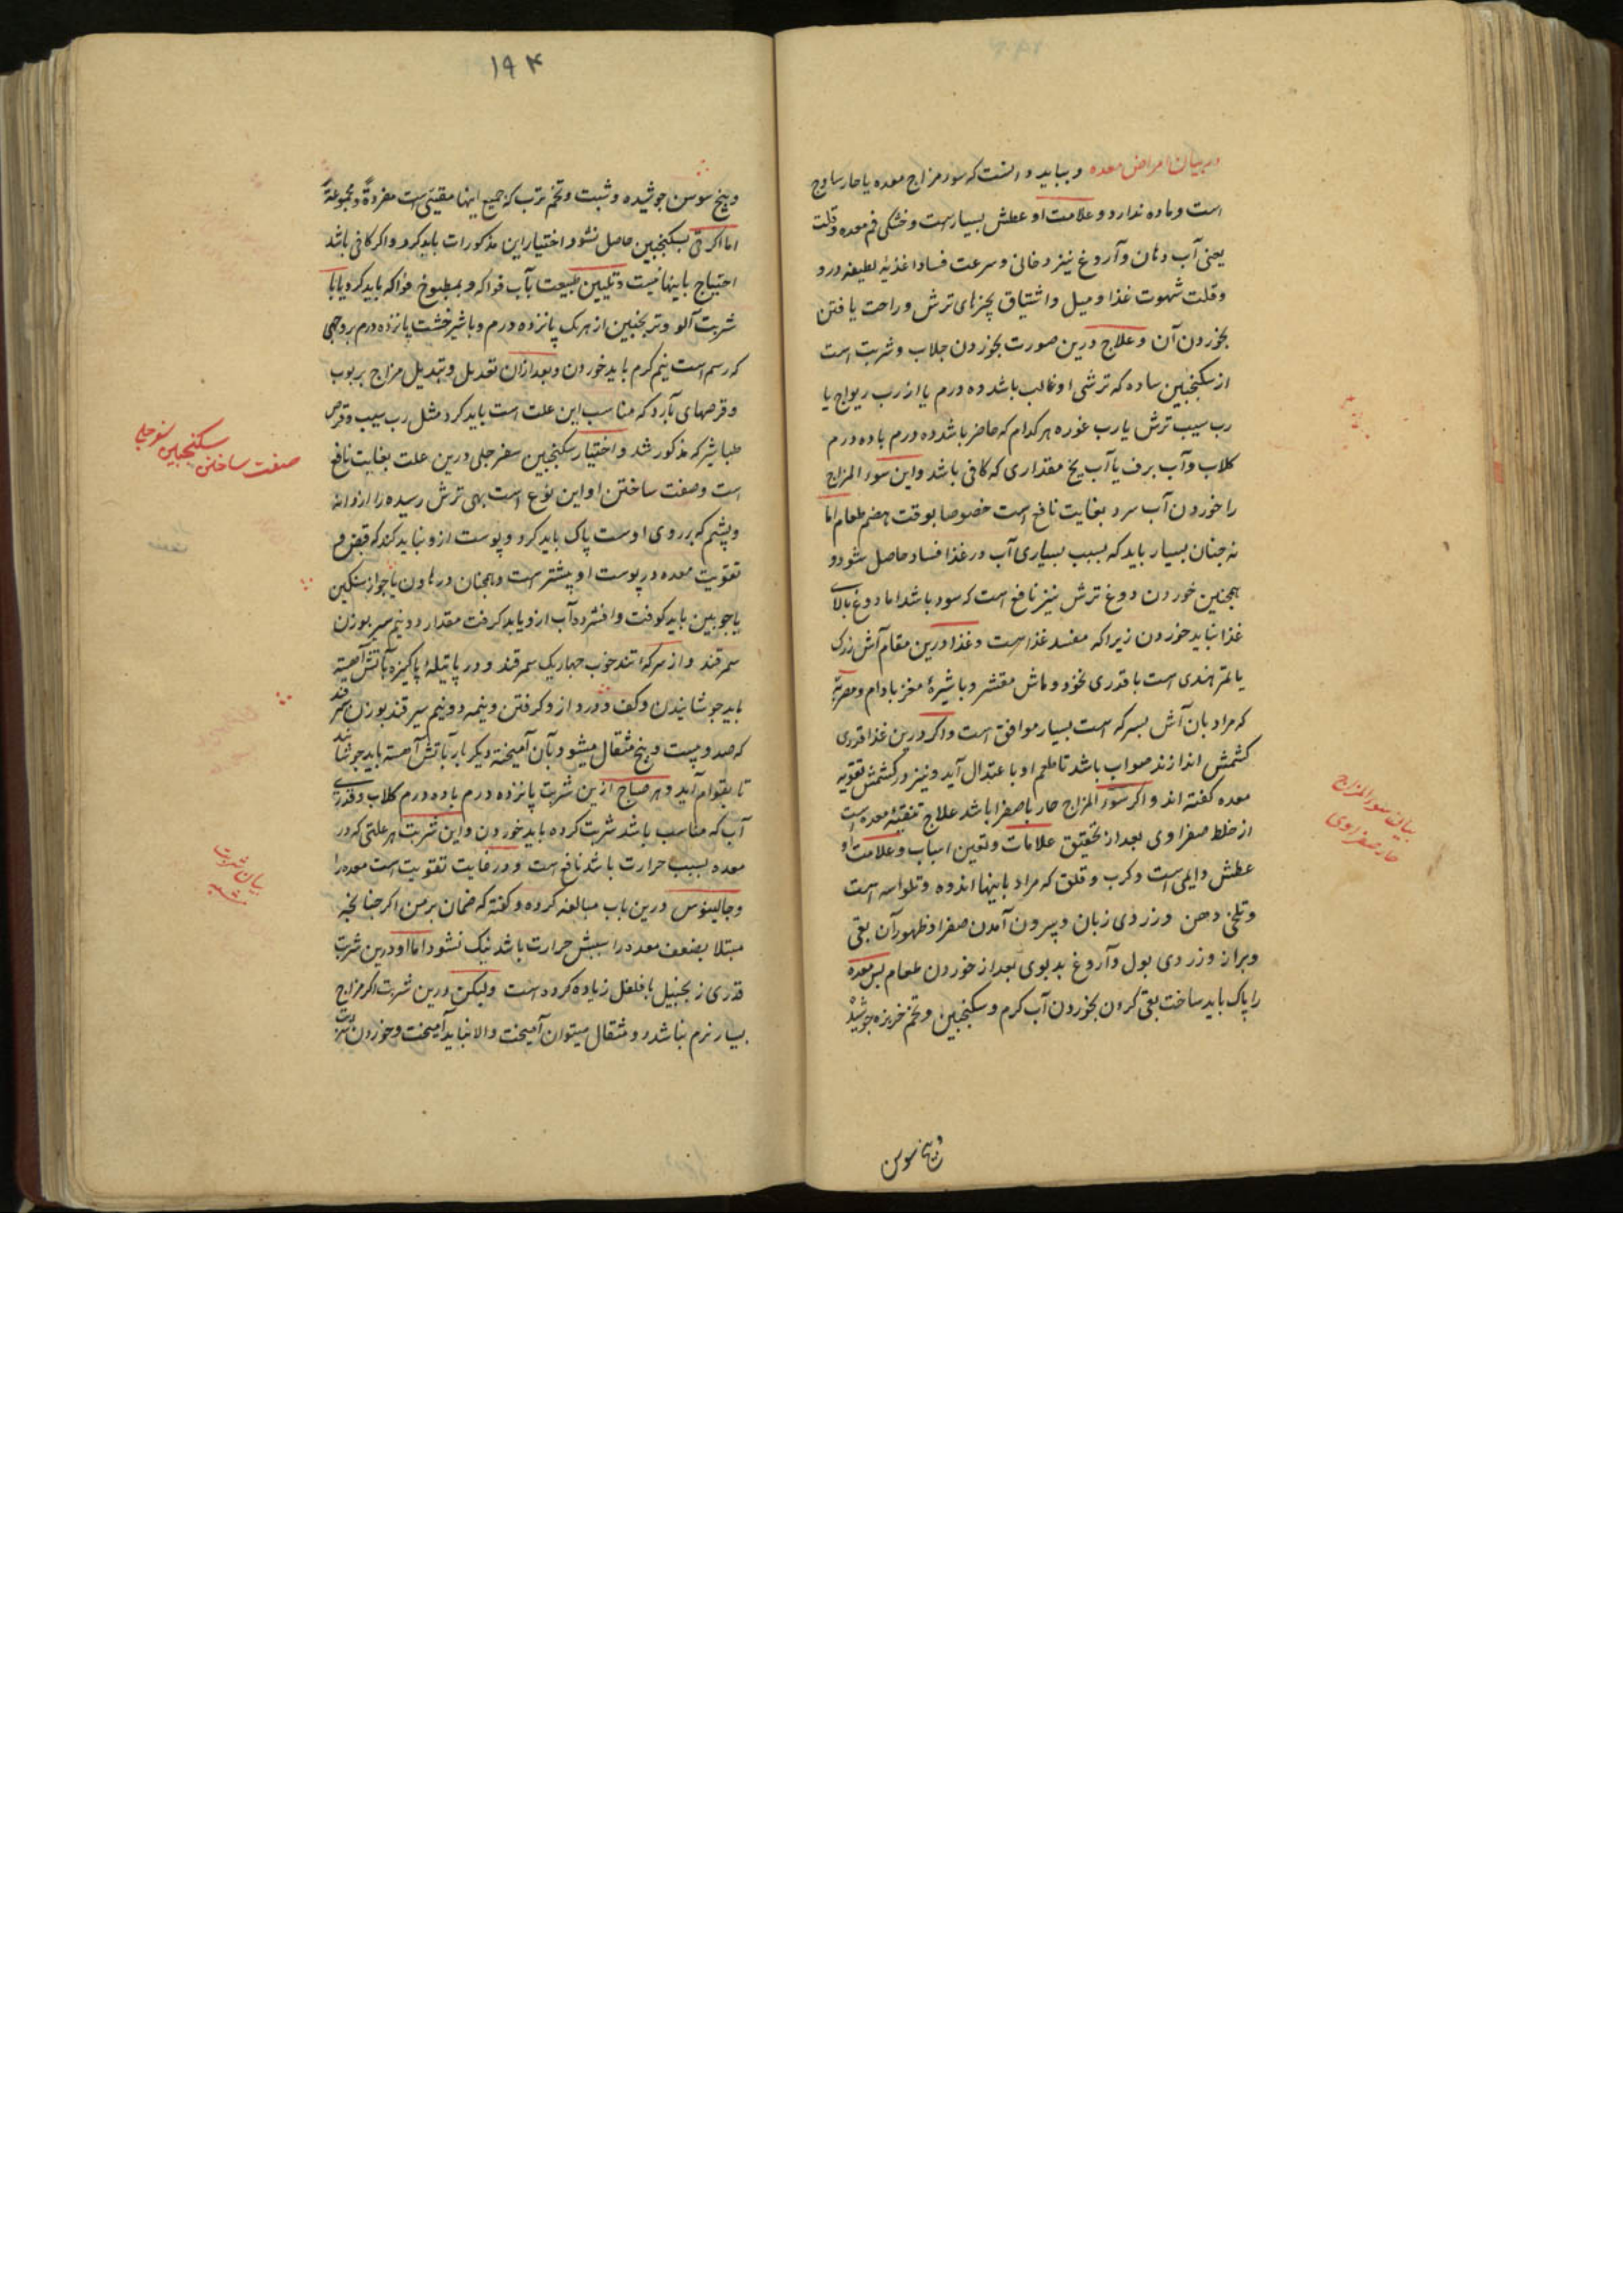 در بیان امراض معده و بباید دانست که سوء مزاج معده یا حار ساذج
است و ماده ندارد و علامت او عطش بسیارست و خشکی فم معده و قلت
یعنی آب دهان و آروغ نیز دخانی و سرعت فساد اغذیهٔ لطیفه درو
و قلت شهوت غذا و میل و اشتیاق بچیزهای ترش و راحت یافتن
بخوردن آن و علاج درین صورت بخوردن جلاب و شربت است
از سکنجبین ساده که ترشی او غالب باشد ده درم یا از رب ریواج یا
رب سیب ترش یا رب غوره هر کدام که حاضر باشد ده درم با ده درم
کلاب و آب برف یا آب یخ مقداری که کافی باشد و این سوء المزاج
را خوردن آب سرد بغایت نافع است خصوصا بوقت هضم طعام اما
نه چنان بسیار باید که بسبب بسیاری آب در غذا فساد حاصل شود و
همچنین خوردن دوغ ترش نیز نافع است که سود باشد اما دوغ بالای
غذا نباید خوردن زیرا که مفسد غذاست و غذا درین مقام آش زرک
یا تمر هندی است با قدری نخود و ماش مقشر و با شیرهٔ مغز بادام و مصریة
که مراد بان آش بسرکه است بسیار موافق است و اکر درین غذا قدری
کشمش اندازند صواب باشد تا طعم او با عتدال آید و نیز در کشمش تقویه
معده کفته اند و اکر سوء المزاج حار با صفرا باشد علاج تنقیهٔ معده است
از خلط صفراوی بعد از تحقیق علامات و تعین اسباب و علامت او
عطش دایمی است و کرب و قلق که مراد باینها اندوه و تلواسه است
و تلخی دهن و زردی زبان و بیرون آمدن صفرا و ظهور آن بقی
و براز و زردی بول و آروغ بد بوی بعد از خوردن طعام پس معده
را پاک باید ساخت بقی کردن بخوردن آب کرم و سکنجبین و تخم خربزه جوشیده
و بیخ سوسن
بیان سوء المزاج
حار صفراوی
۱۹۴
و بیخ سوسن جوشیده و شبت و تخم ترب که جمیع اینها مقییٔ است مفردةً و مجموعةً
اما اکر قی بسکنجبین حاصل نشود اختیار این مذکورات باید کرد و اکر کافی باشد
احتیاج باینها نیست و تلیین طبیعت بآب فواکه و بمطبوخ فواکه باید کرد یا با
شربت آلو و ترنجبین از هریک پانزده درم و با شیر خشت پانزده درم بروجهی
که رسم است نیم کرم باید خوردن و بعد ازان تعدیل و تبدیل مزاج بربوب
و قرصهای بارد که مناسب این علت است باید کرد مثل رب سیب و قرص
طباشیر که مذکور شد و اختیار سکنجبین سفرجلی درین علت بغایت نافع
است و صفت ساختن او این نوع است بهی ترش رسیده را از دانه
و پشم که بر روی اوست پاک باید کرد و پوست ازو نباید کند که قبض و
تقویت معده در پوست او بیشتر است و همچنان در هاون یا جواز سنکین
یا چوبین باید کوفت و افشرده آب ازو باید کرفت مقدار دو نیم سیر بوزن
سمرقند و از سرکهٔ تند خوب چهاریک سمرقند و در پاتیلهٔ پاکیزه بآتش آهسته
باید جوشانیدن و کف و درد ازو کرفتن و نیمه دو نیم سیر قند بوزن سمرقند
که صد و بیست و پنج مثقال میشود بآن آمیخته دیکر بار بآتش آهسته باید جوشانید
تا بقوام آید و هر صباح ازین شربت پانزده درم با ده درم کلاب و قدری
آب که مناسب باشد شربت کرده باید خوردن و این شربت هر علتی که در
معده بسبب حرارت باشد نافع است و در غایت تقویت است معده را
و جالینوس درین باب مبالغه کرده و کفته که ضمان بر من اکر چنانچه
مبتلا بضعف معده را سببش حرارت باشد نیک نشود اما او درین شربت
قدری زنجبیل با فلفل زیاده کرده است ولیکن درین شربت اکر مزاج
بسیار نرم نباشد دو مثقال میتوان آمیخت و الا نباید آمیخت و خوردن شربت
صفت ساختن سکنجبین سفرجلی
بیان شربت